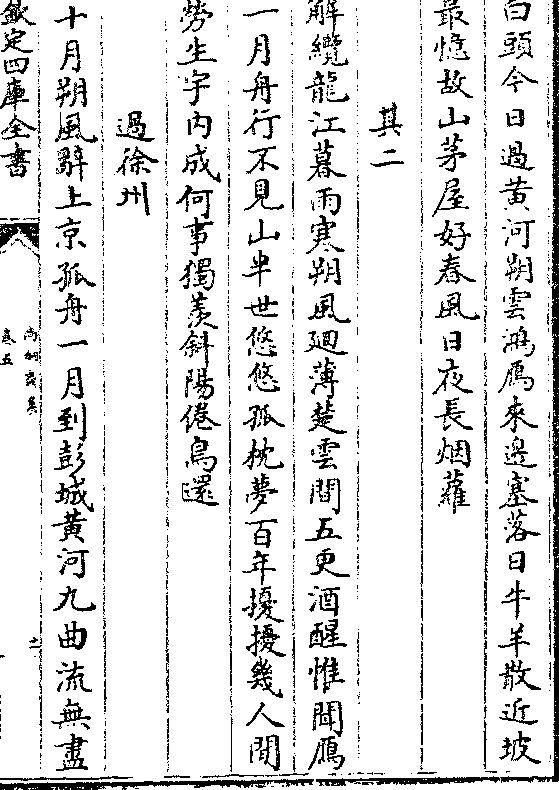 白頭今日過黄河朔雲鴻鴈來邊塞落日牛羊散近坡
最憶故山茅屋好春風日夜長烟蘿
其二
解纜龍江暮雨寒朔風廻薄楚雲間五更酒醒惟聞鴈
一月舟行不見山半世悠悠孤枕夢百年擾擾幾人閒
勞生宇内成何事獨羡斜陽倦鳥還
過徐州
十月朔風辭上京孤舟一月到彭城黄河九曲流無盡
欽定四庫全書
卷五